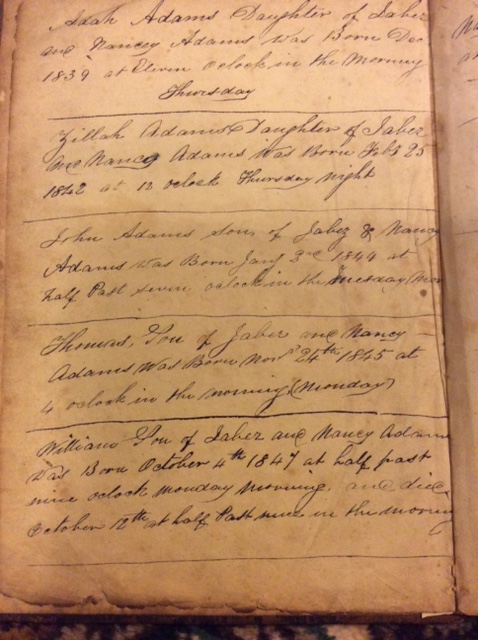 Adah Adams Daughter of Jabez
and Nancy Adams Was Born Dec
1839 at Eleven Oclock in the Morning
Thursday
Zillah Adams Daughter of Jabez
and Nancy Adams Was Born Feb 25
1842 at 12 oclock Thursday night
John Adams son of Jabez & Nancy
Adams Was Born Jany 3rd 1844 at
half Past seven oclock in the
Thomas, Son of Jabez and Nancy
Adams Was Born Novr 24th 1845 at
4 oclock in the morning (Monday)
William Son of Jabez and Nancy Adams
Was Born October 4th 1847 at half past
nine oclock Monday Morning, and died
October 12th at half Past nine in the morning